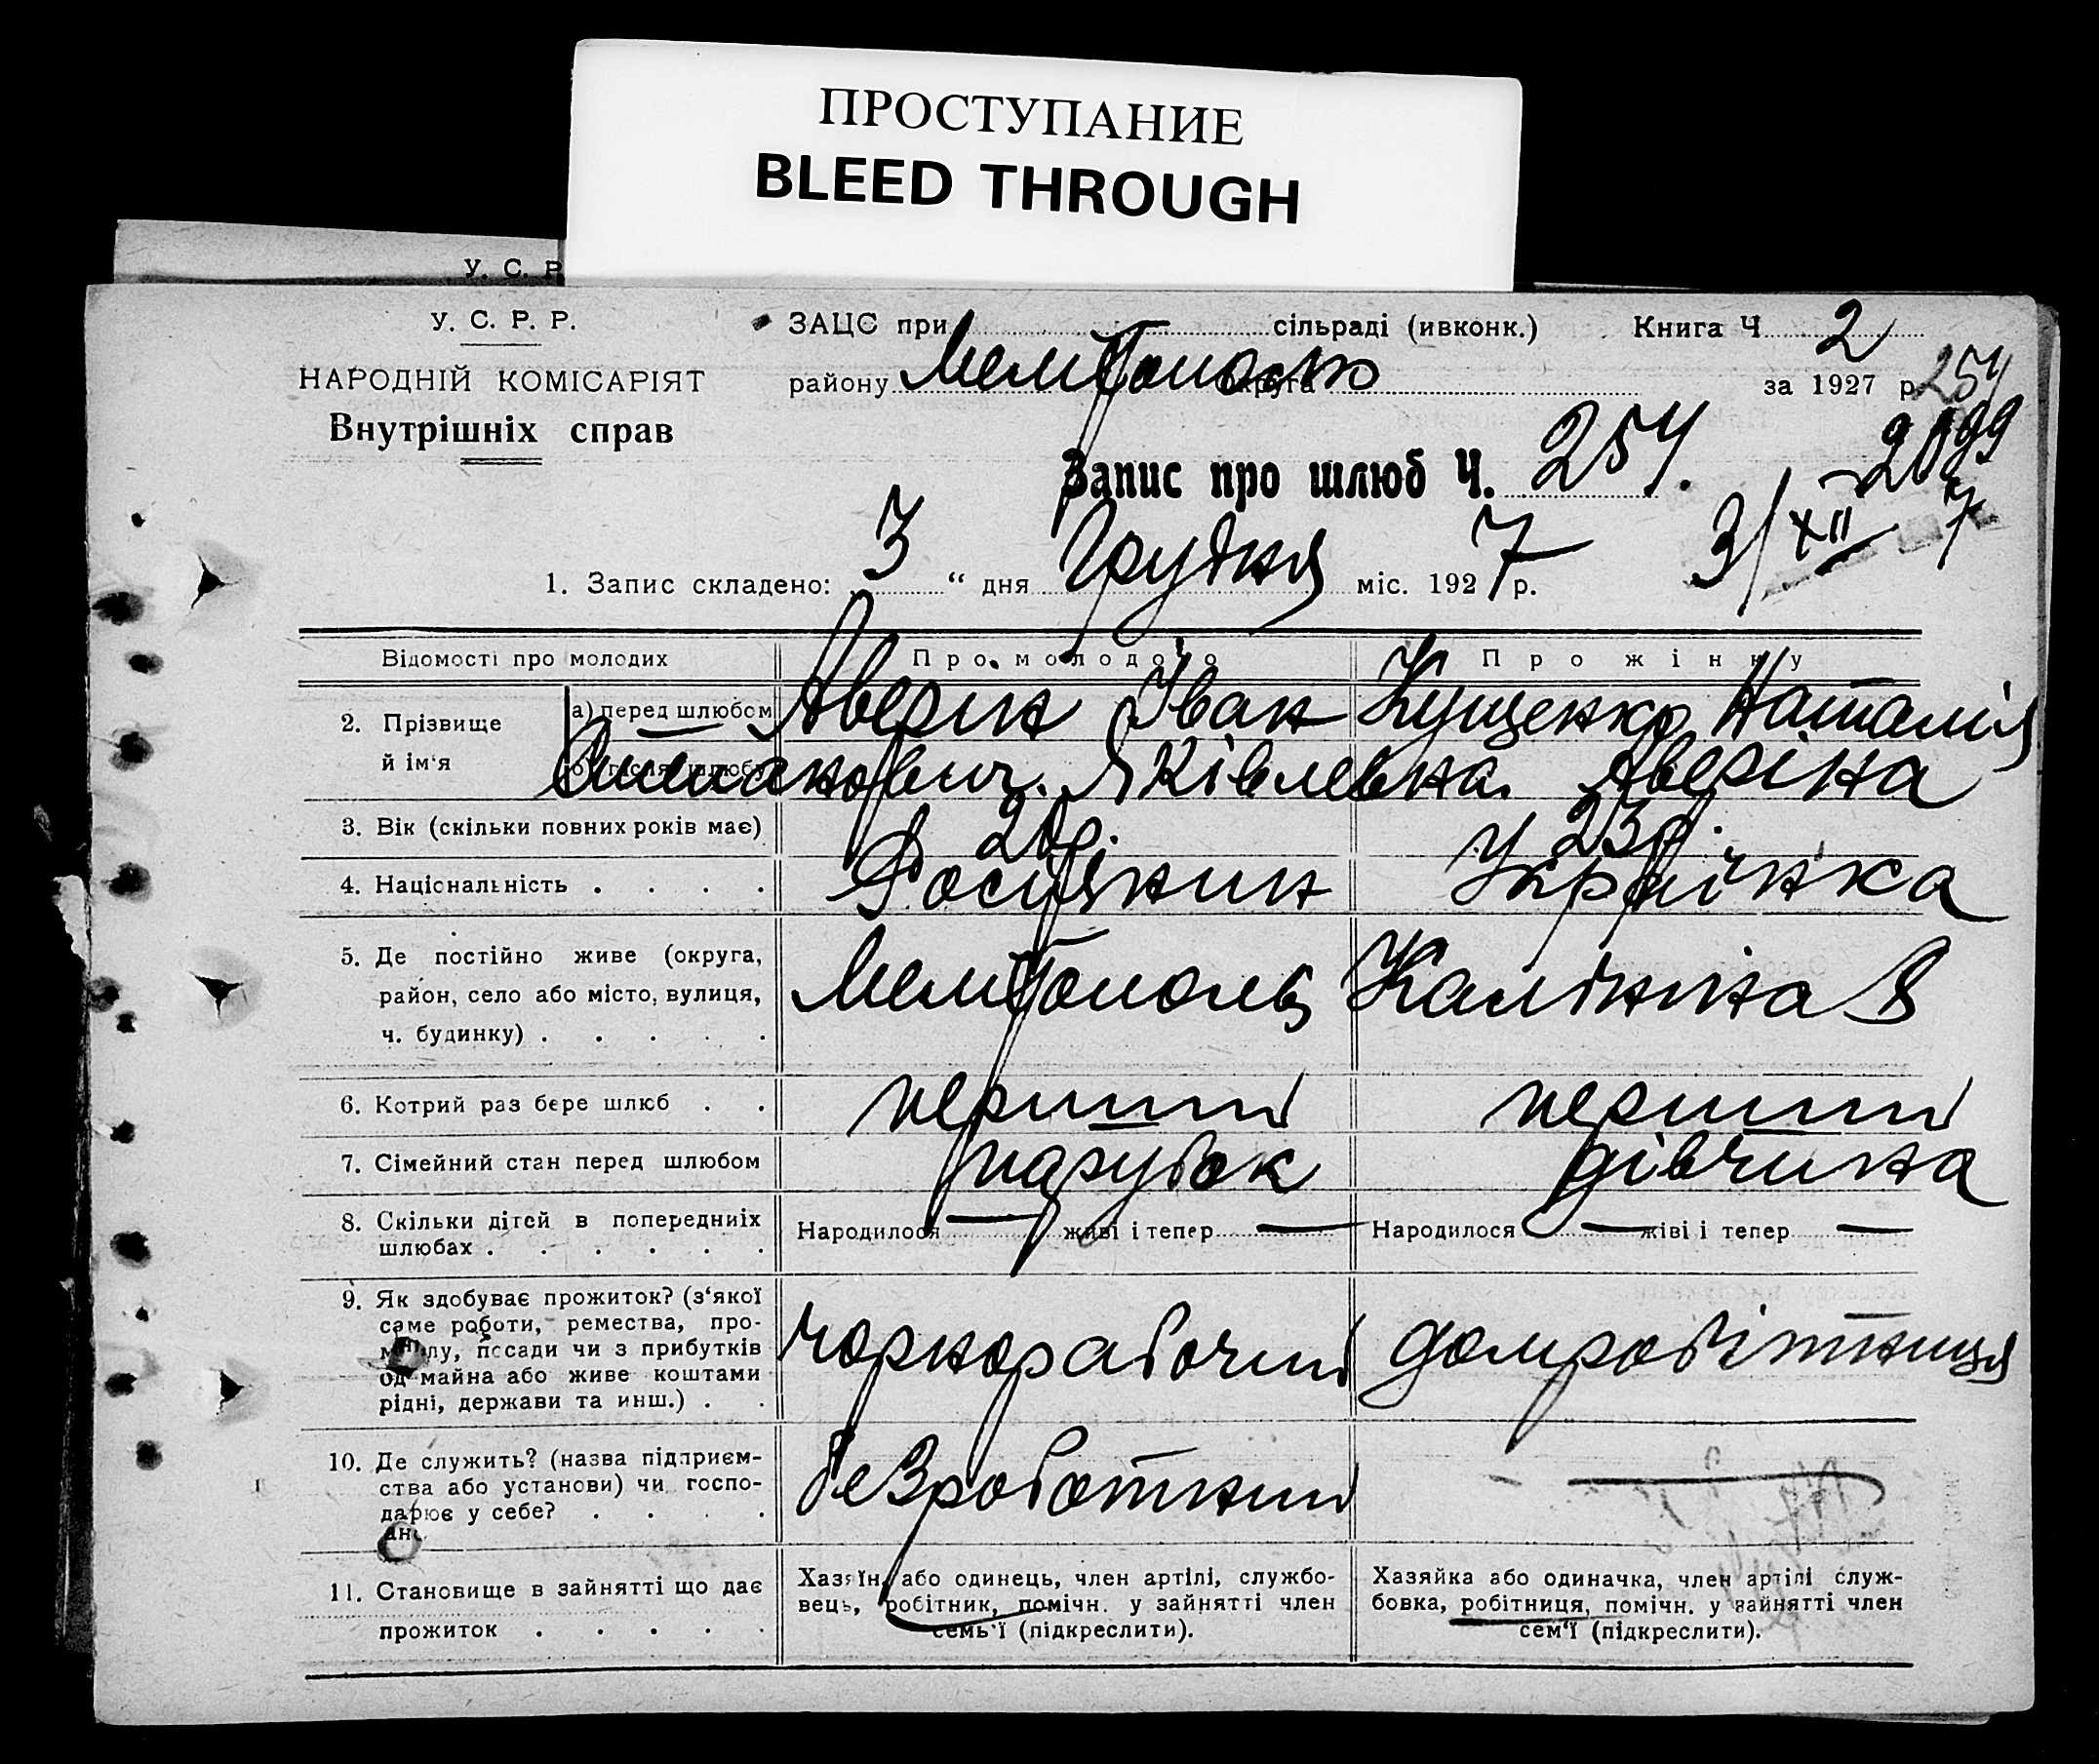 ПРОСТУПАНИЕ
BLEED THROUGH
У. С. Р.
У. С. Р. Р.
НАРОДНІЙ КОМІСАРІЯТ
Внутрішніх справ
ЗАЦС при сільраді (ивконк.) Книга Ч 2
району округа за 1927 р. 254
Запис про шлюб Ч. 254.
3/XII 7
1. Запис складено: 3 “ дня Грудня міс. 1927 р.
Відомості про молодих Про молодого Про жінку
2. Прізвище й ім'я а) перед шлюбом Аверин Іван Кущенко Наталія
б) після шлюбу Яківлевна. Аверіна
3. Вік (скільки повних років має) 23р.
4. Національність . . . . Росіянин Українка
5. Де постійно живе (округа,
район, село або місто, вулиця,
ч. будинку) . . . . .
Мелітополь Калініна 8
6. Котрий раз бере шлюб . . перший перший
7. Сімейний стан перед шлюбом парубок дівчина
8. Скільки дітей в попередниіх
шлюбах . . . . . .
Народилося — живі і тепер — Народилося — жіві і тепер —
9. Як здобуває прожиток? (з'якої
саме роботи, ремества, про-
мислу, посади чи з прибутків
од майна або живе коштами
рідні, держави та инш.) . .
чорнорабочий домробітниця
10. Де служить? (назва підприєм-
ства або установи) чи госпо-
дарює у себе? . . . .
безроботний —
11. Становище в зайнятті що дає
прожиток . . . . .
Хазяїн, або одинець, член артілі, службо-
вець, робітник, помічн. у зайнятті член
семь'ї (підкреслити).
Хазяйка або одиначка, член артілі служ-
бовка, робітниця, помічн. у зайнятті член
сем'ї (підкреслити).